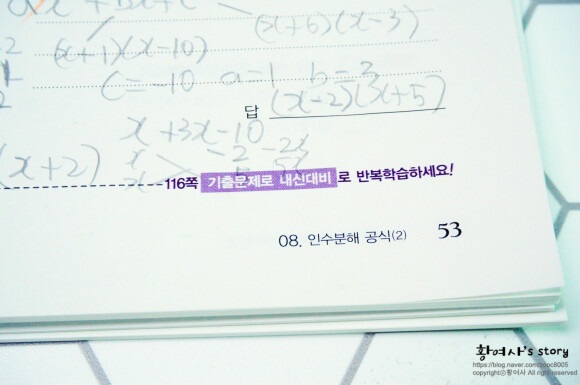 ax + bx + c
(x+6)(x-3)
(x+1)(x-10)
c=-10 a=1 b=3
답 (x-2)(x+5)
x+3x-10
x -2 -2x
(x+2) x 5 5x
116쪽 기출문제로 내신대비 로 반복학습하세요!
08. 인수분해 공식(2) 53
황여사's story
copyrightⓒ황여사 All rights reserved